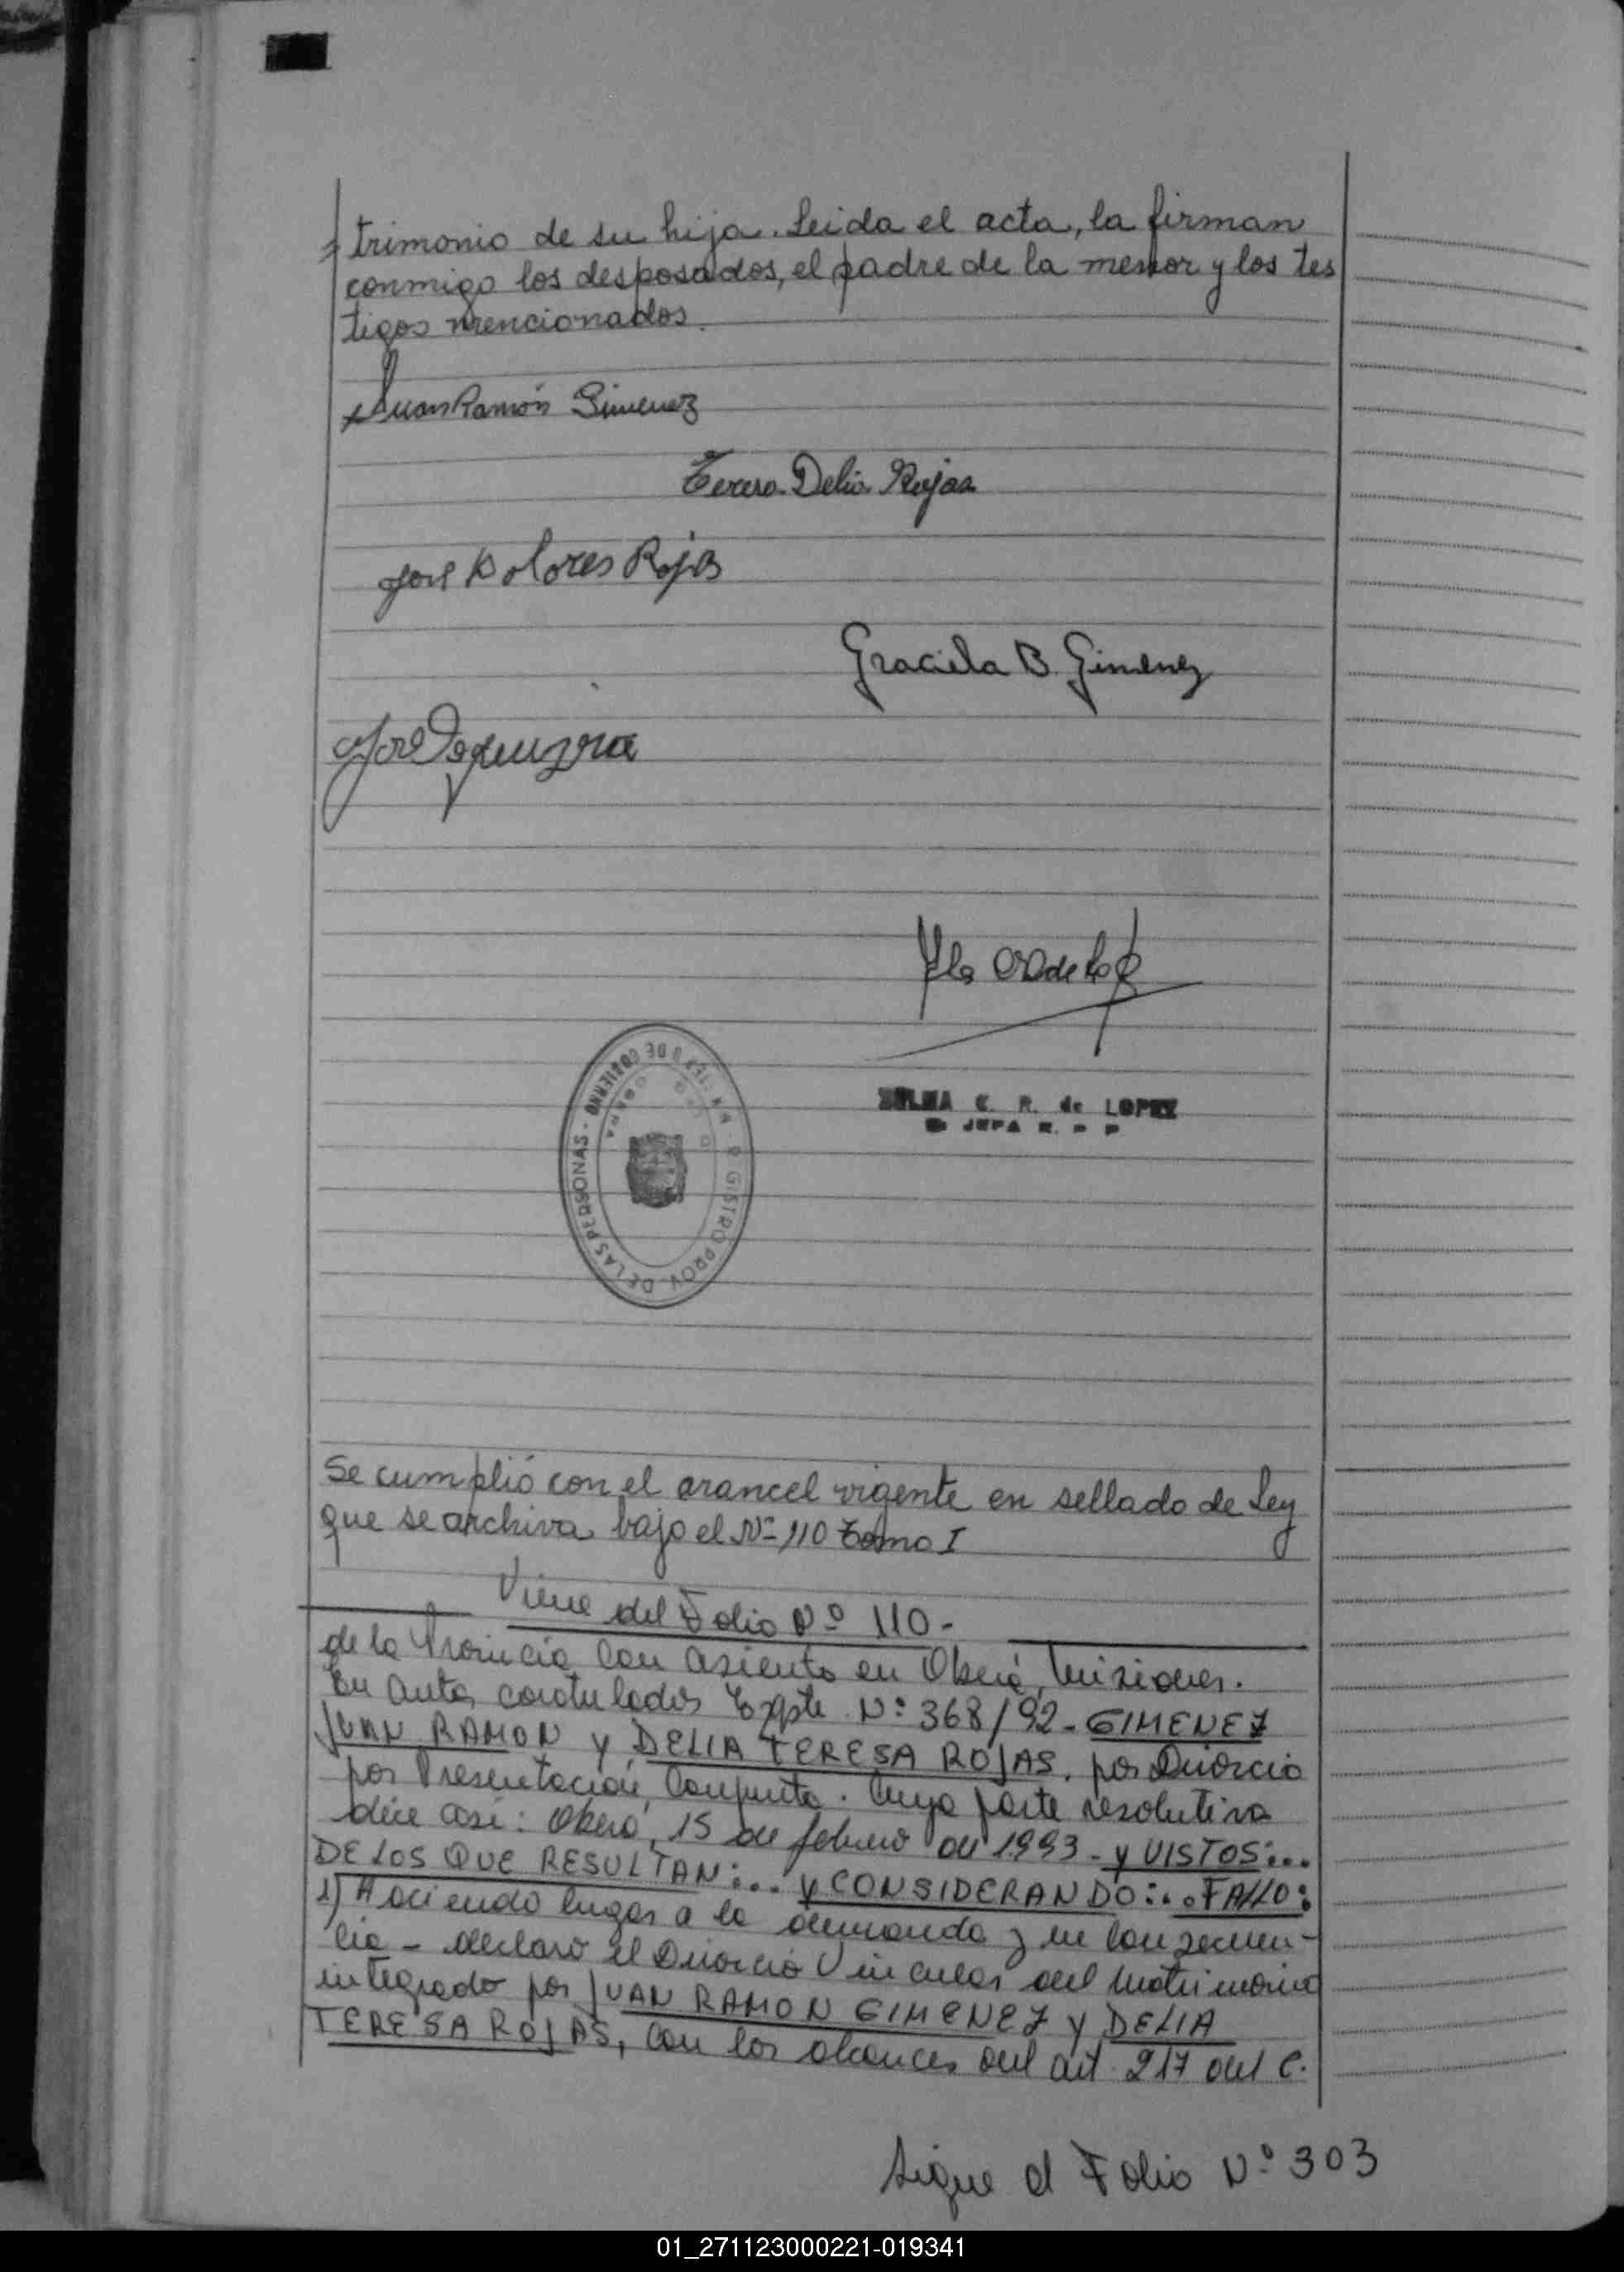 trimonio de su hija. Leida el acta, la firman
conmigo los desposados, el padre de la menor y los tes
tigos mencionados.
Juan Ramón Gimenez
Teresa Delia Rojas
José Dolores Rojas
Graciela B. Gimenez
José
MINISTERIO DE GOBIERNO - REGISTRO PROV. DE LAS PERSONAS - OBERA
ZULMA C. R. de LOPEZ
JEFA R. P. P
Se cumplió con el arancel vigente en sellado de Ley
que se archiva bajo el Nº 110 Tomo I
Viene del Folio Nº 110-
de la Provincia con asiento en Oberá, Misiones.
En autos caratulados Expte. Nº 368/92 - GIMENEZ
JUAN RAMON y DELIA TERESA ROJAS, por Divorcio
por Presentación Conjunta. Cuya parte resolutiva
dice así: Oberá, 15 de febrero de 1993 - y VISTOS:...
DE LOS QUE RESULTAN:... y CONSIDERANDO:.. FALLO:
1) Haciendo lugar a la demanda y en consecuen-
cia - declaro el Divorcio Vincular del Matrimonio
integrado por JUAN RAMON GIMENEZ y DELIA
TERESA ROJAS, con los alcances del art. 217 del C.
Sigue el Folio Nº 303
01_271123000221-019341